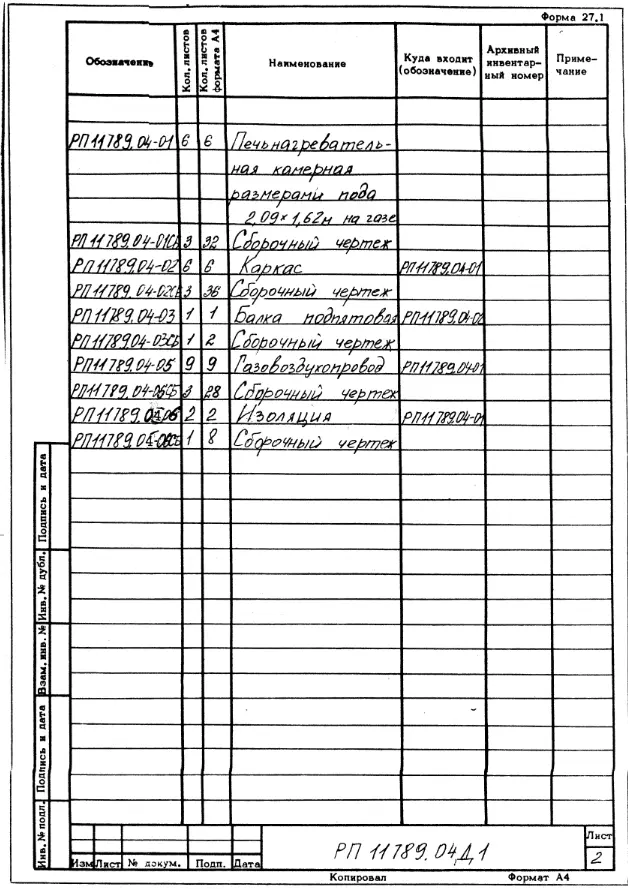 Форма 27.1
Обозначение Кол. листов Кол. листов формата А4 Наименование Куда входит (обозначение) Архивный инвентар-ный номер Приме-чание
РП11789.04-01 6 6 Печь нагреватель-
ная камерная
размерами пода
2,09×1,62м на газе
РП11789.04-01СБ 3 32 Сборочный чертеж
РП11789.04-02 6 6 Каркас РП11789.04-01
РП11789.04-02СБ 3 36 Сборочный чертеж
РП11789.04-03 1 1 Балка подпятовая РП11789.04-02
РП11789.04-03СБ 1 2 Сборочный чертеж
РП11789.04-05 9 9 Газовоздухопровод РП11789.04-01
РП11789.04-05СБ 3 28 Сборочный чертеж
РП11789.04-06 2 2 Изоляция РП11789.04-01
РП11789.04-06СБ 1 8 Сборочный чертеж
Подпись и дата
Инв. № дубл.
Взам. инв. №
Подпись и дата
Инв. № подл.
РП 11789.04Д1
Лист
2
Изм Лист № докум. Подп. Дата
Копировал Формат А4